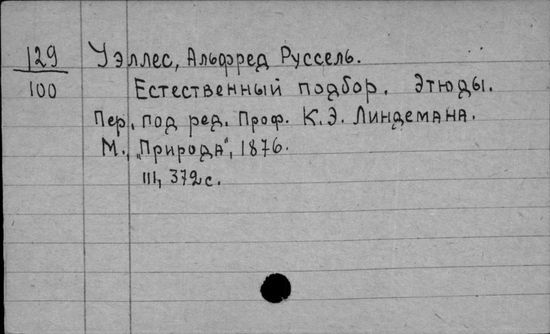 129 Уэллес, Альфред Руссель.
100 Естественный подбор. Этюды.
Пер. под ред. Проф. К.Э. Линдемана.
М., „Природа", 1876.
III, 372 с.